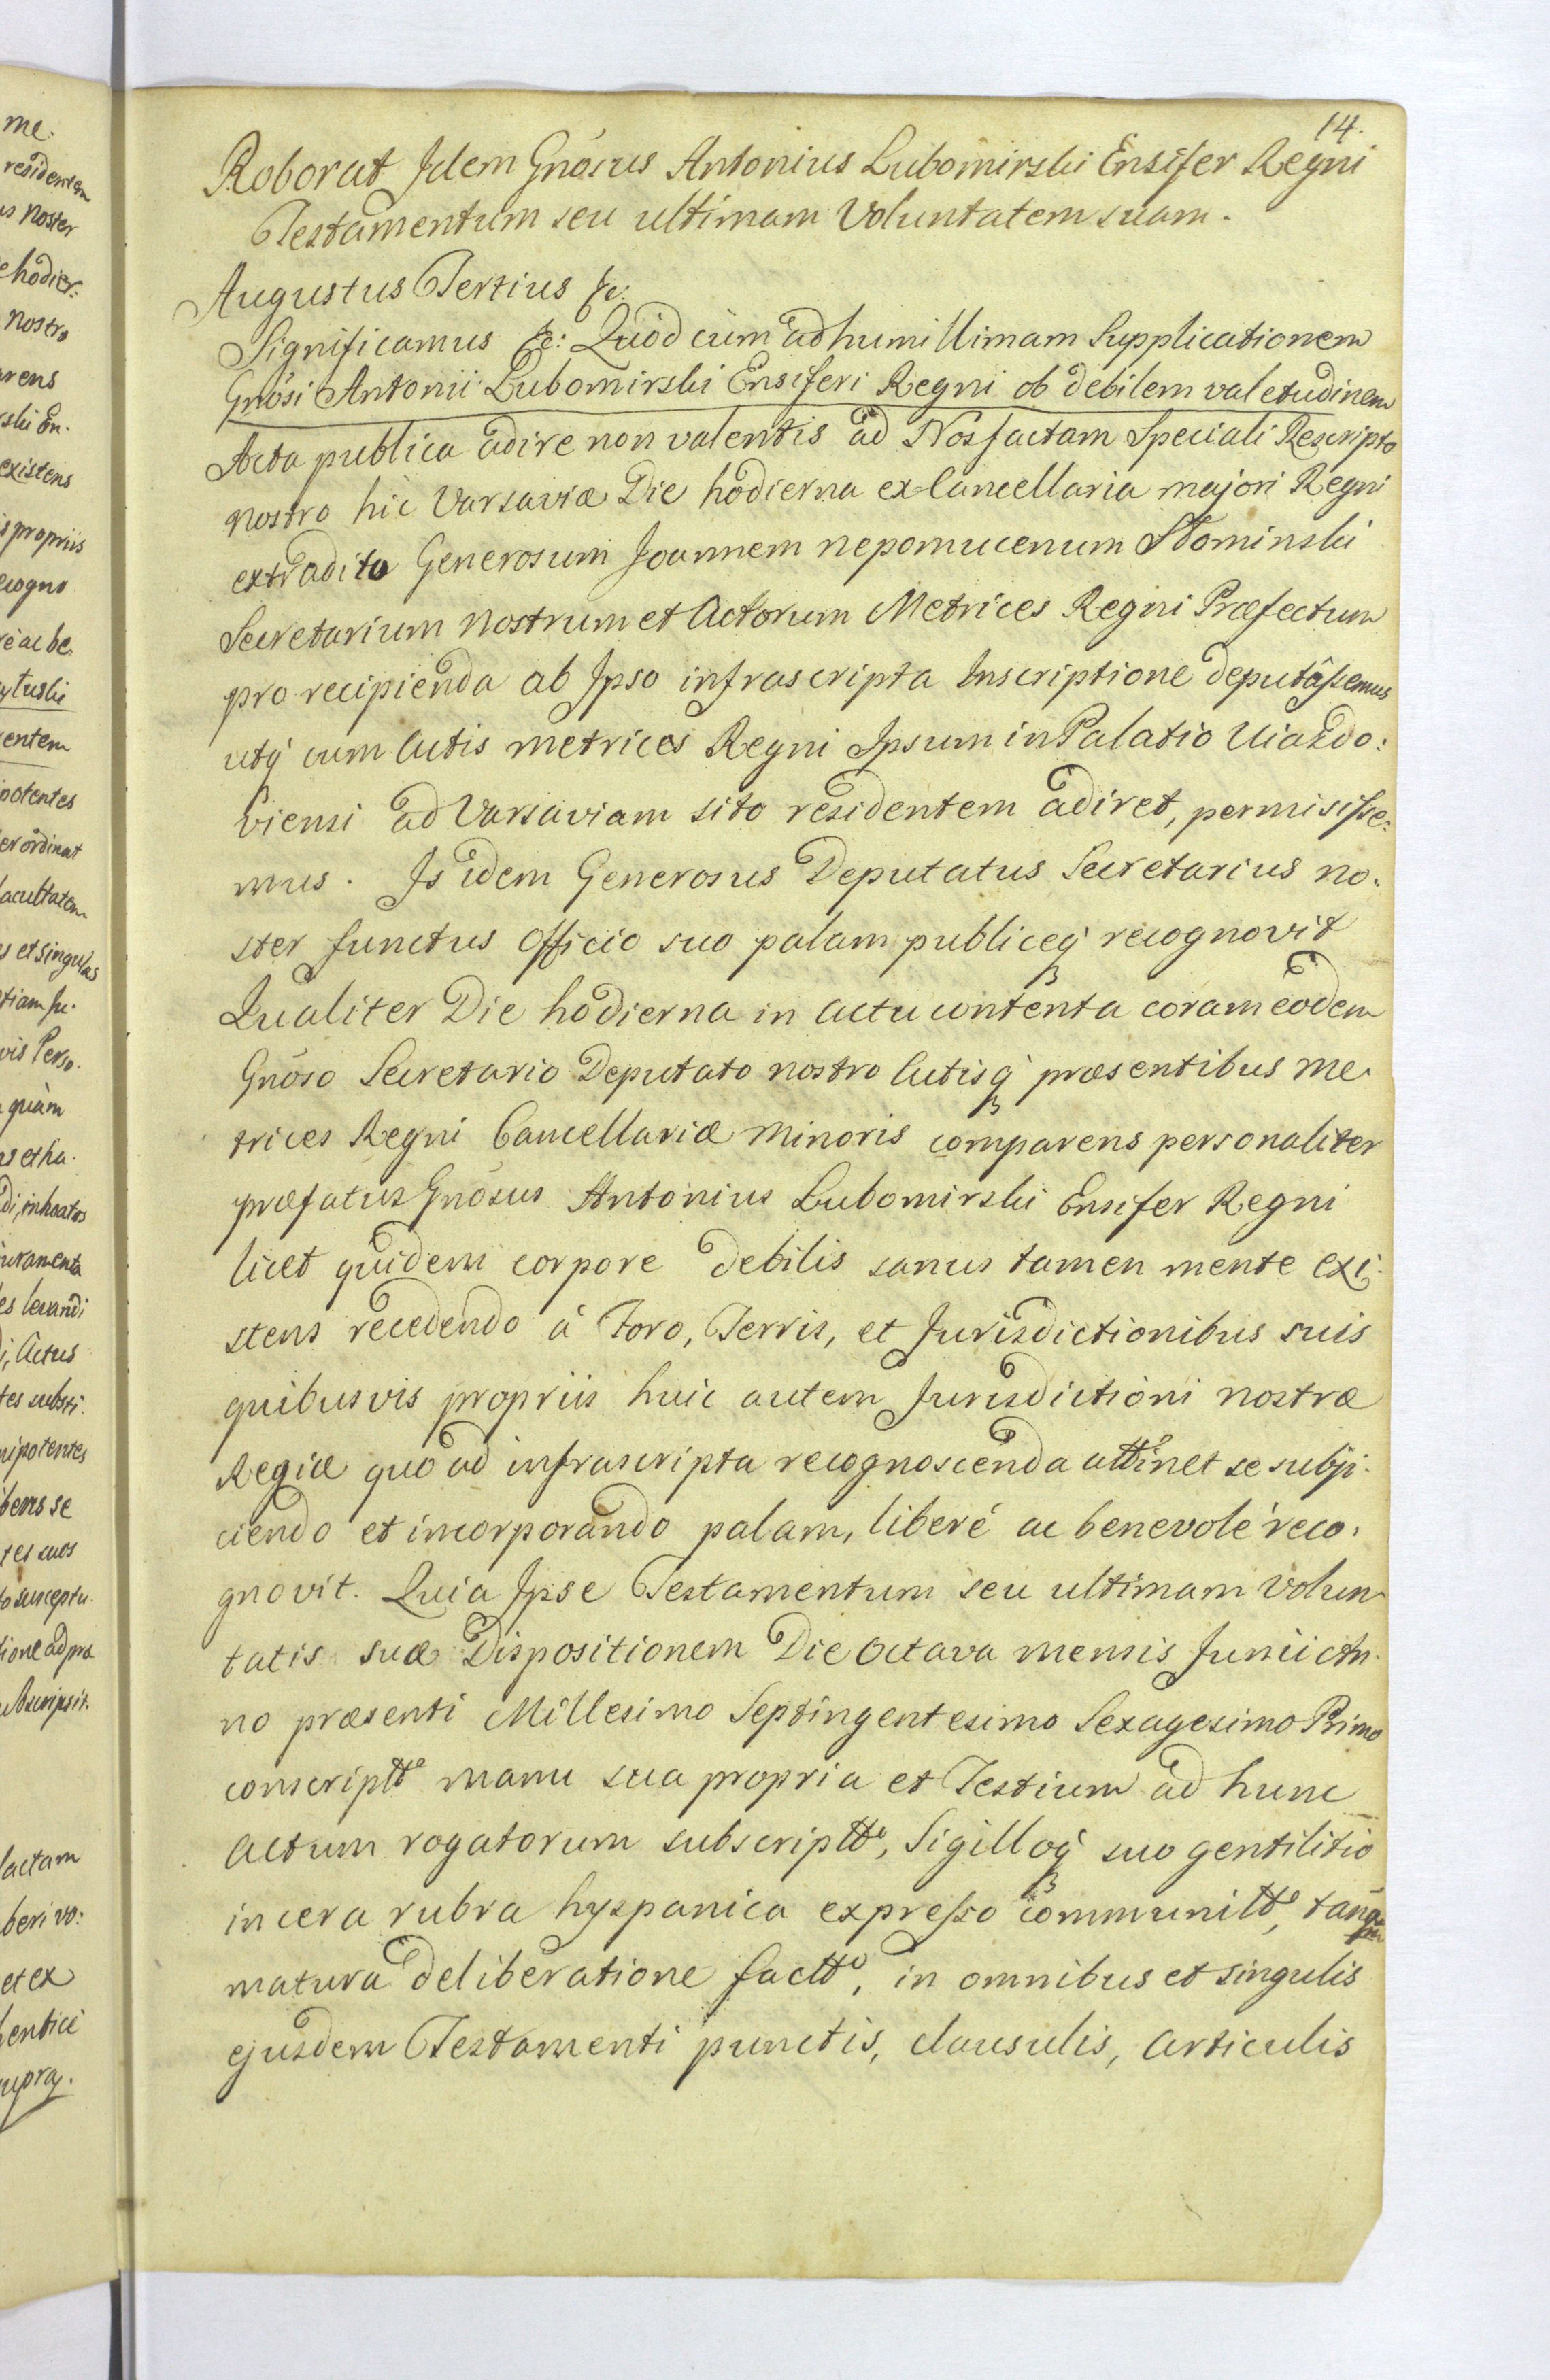 14.
Roborat Idem Gnosus Antonius Lubomirski Ensifer Regni
Testamentum seu ultimam Voluntatem suam.
Augustus Tertius &c:
Significamus &c: Quod cùm ad humillimam Supplicationem
Gnösi Antonii Lubomirski Ensiferi Regni ob debilem valetudinem
Acta publica adire non valentis ad Nos factam Speciali Rescripto
nostro hic Varsaviæ Die hodierna ex Cancellaria majori Regni
extradito Generosum Joannem nepomucenum Słominski
Secretarium nostrum et Actorum Metrices Regni Præfectum
pro recipienda ab Ipso infrascripta Inscriptione deputâssemus
utq́ cum Actis metrices Regni Ipsum in Palatio Uiazdo:
viensi ad Varsaviam sito residentem adiret, permisisse:
mus. Is idem Generosus Deputatus Secretarius no.
ster functus Officio suo palam publiceq́ recognovit
Qualiter Die hodierna in actu contenta coram eodem
Gnöso Secretario Deputato nostro Actisq́ præsentibus me.
trices Regni Cancellariæ minoris comparens personaliter
præfatus Gnosus Antonius Lubomirski Ensifer Regni
licet quidem corpore debilis sanus tamen mente exi.
stens recedendo à Foro, Terris, et Jurisdictionibus suis
quibusvis propriis huic autem Jurisdictioni nostræ
Regiæ quo ad infrascripta recognoscenda attinet se subji.
ciendo et incorporando palam, liberé ac benevolé reco.
gnovit. Quia Ipse Testamentum seu ultimam volun
tatis suæ Dispositionem Die octava mensis Junii An.
no præsenti Millesimo Septingentesimo Sexagesimo Primo
conscriptt° manu sua propria et Testium ad hunc
actum rogatorum subscriptt°, Sigilloq́ suo gentilitio
in cera rubra hyspanica expresso communitt°, tanq̃m
matura deliberatione factt°, in omnibus et singulis
ejusdem Testamenti punctis, clausulis, articulis